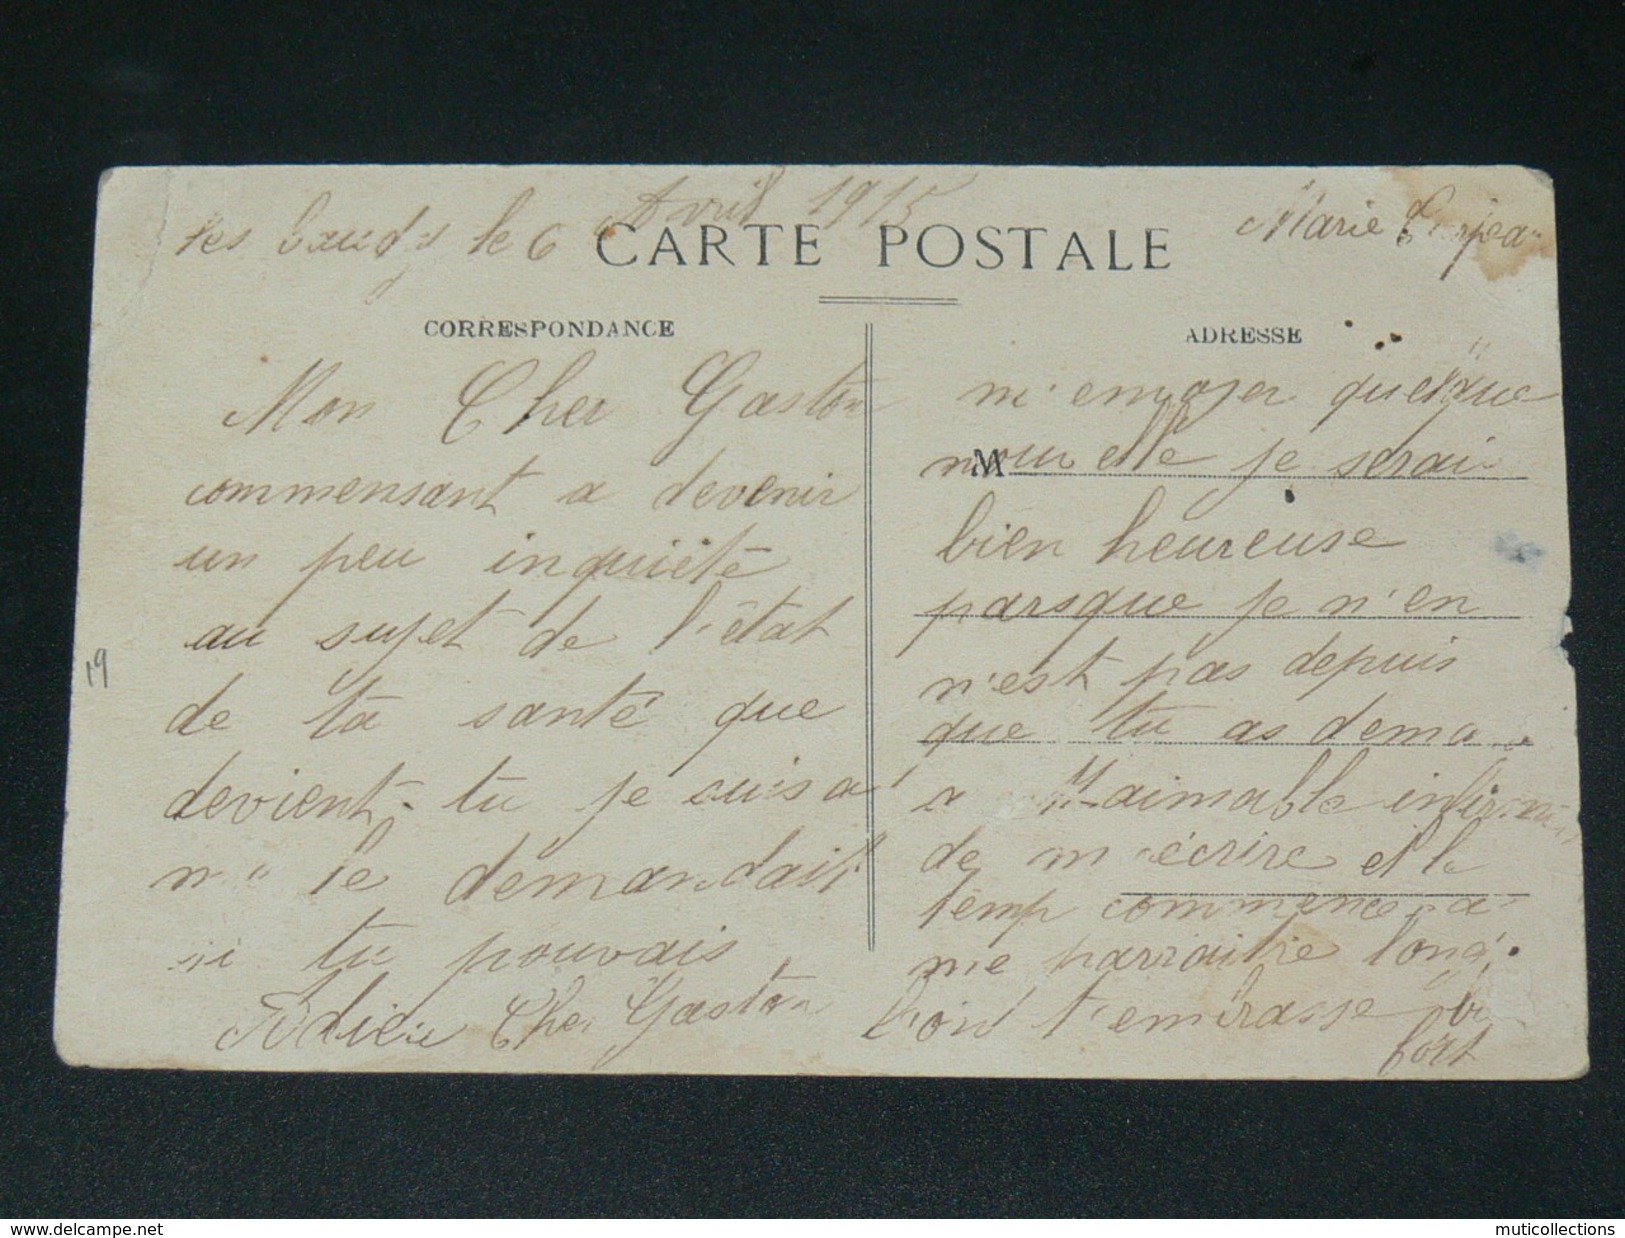 le 6 Avril 1915
Marie
CARTE POSTALE
CORRESPONDANCE
ADRESSE
Mon Cher Gaston
commensant a devenir
un peu inquiété
au sujet de l'état
de ta santé que
devient-tu je suis a
me le demandait
si tu pouvais
Adieu Cher Gaston
m'envoyer quelque
M nouvelle je serais
bien heureuse
parsque je n'en
n'est pas depuis
que tu as
a l'aimable
de m'écrire et le
temp commence a
me parraitre long.
l'on t'embrasse
fort
19
delcampe.net
muticollections